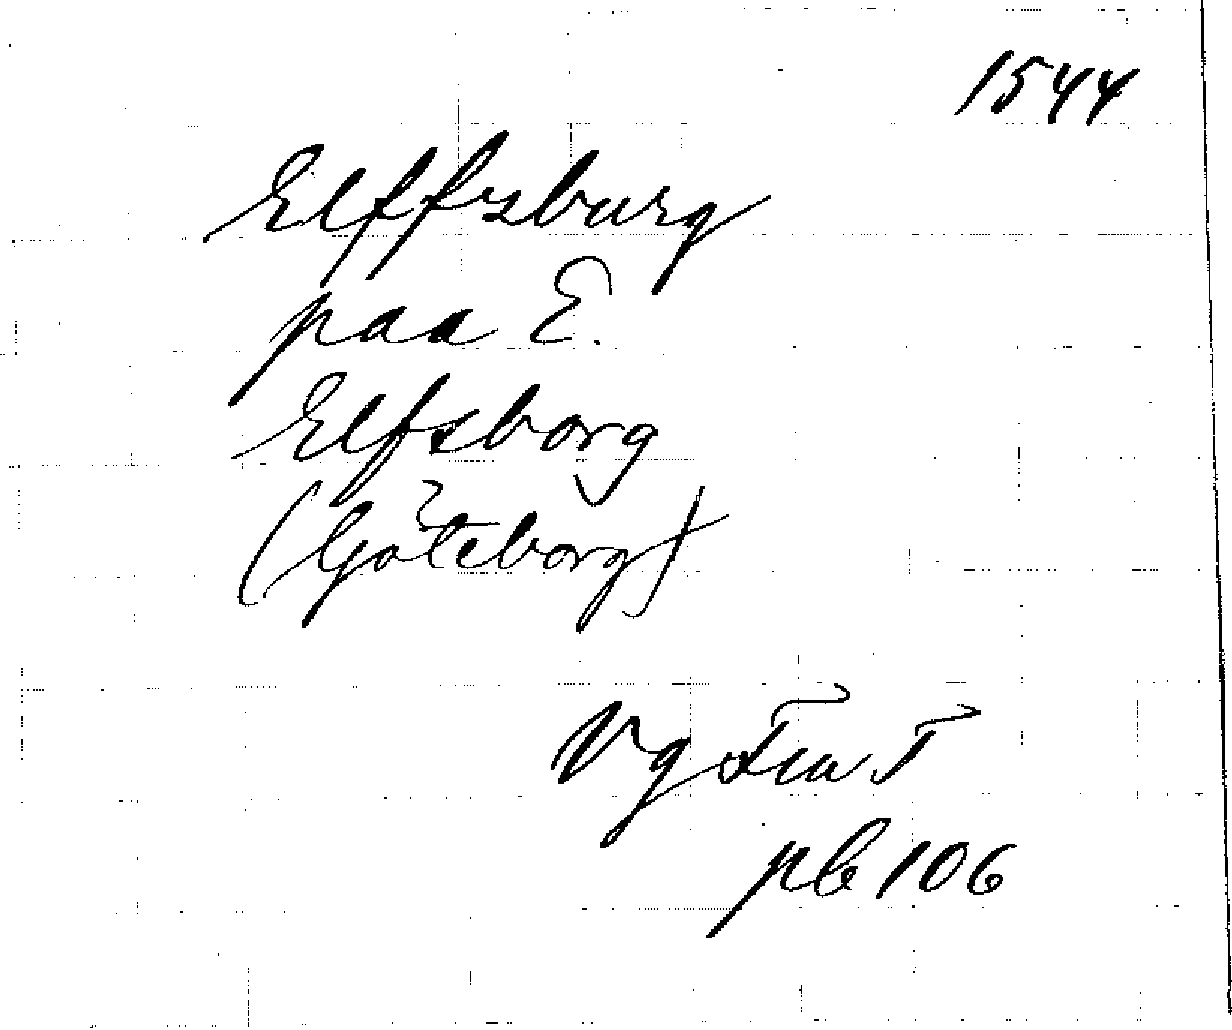 1544
Elffzburg
paa E.
Elfsborg
(Göteborg)
Vg Fia T
pb 106